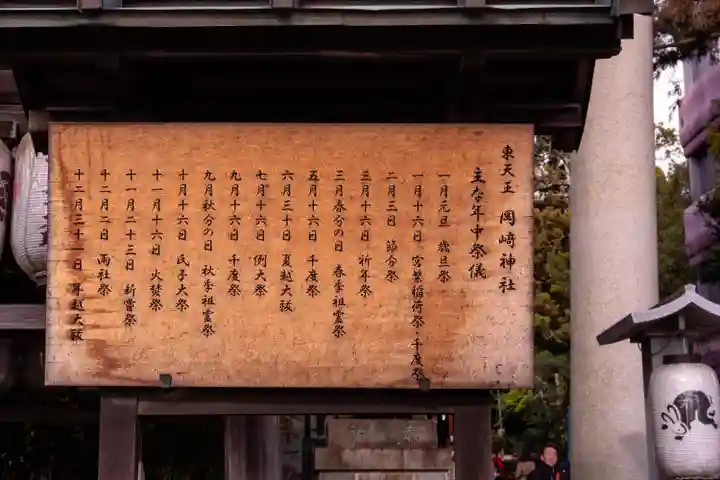 東天王 岡﨑神社
主な年中祭儀
一月元旦 歳旦祭
一月十六日 宮繁稲荷祭・千度祭
二月三日 節分祭
三月十六日 祈年祭
三月春分の日 春季祖霊祭
五月十六日 千度祭
六月三十日 夏越大祓
七月十六日 例大祭
九月十六日 千度祭
九月秋分の日 秋季祖霊祭
十月十六日 氏子大祭
十一月十六日 火焚祭
十一月二十三日 新嘗祭
十二月二日 両社祭
十二月三十一日 年越大祓